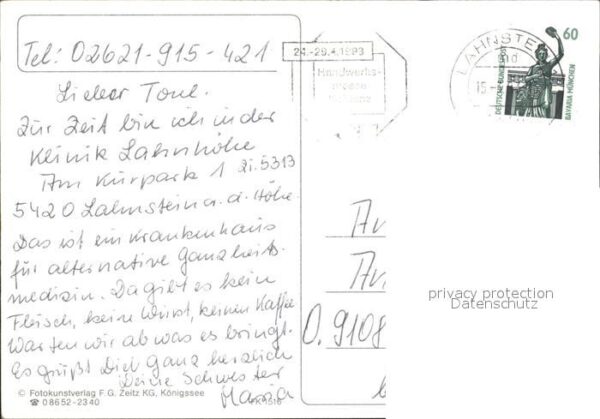 Tel: 02621-915-421
Lieber Toni.
Zur Zeit bin ich in der
Klinik Lahnhöhe
Am Kurpark 1 Zi. 5313
5420 Lahnstein a. d. Höhe.
Das ist ein Krankenhaus
für alternative Ganzheits-
medizin. Da gibt es kein
Fleisch, keine Wurst, keinen Kaffee
Warten wir ab was es bringt.
Es grüßt Dich ganz herzlich
Deine Schwester
Maria
© Fotokunstverlag F.G. Zeitz KG, Königssee
☎ 08652-2340
24.-29.4.1993
Handwerks-
LAHNSTE
15
60
DEUTSCHE BUNDESPOST
BAVARIA MÜNCHEN
An
An
O. 9108
privacy protection
Datenschutz